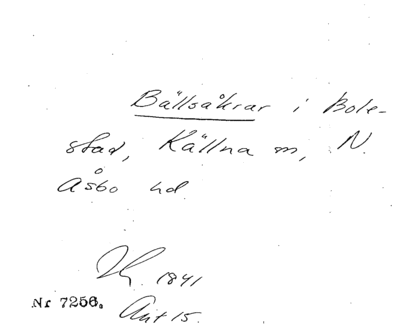 Bällsåkrar i Bole-
stad, Källna sn, N.
Åsbo hd.
1841
Nr 7256. Akt 15.